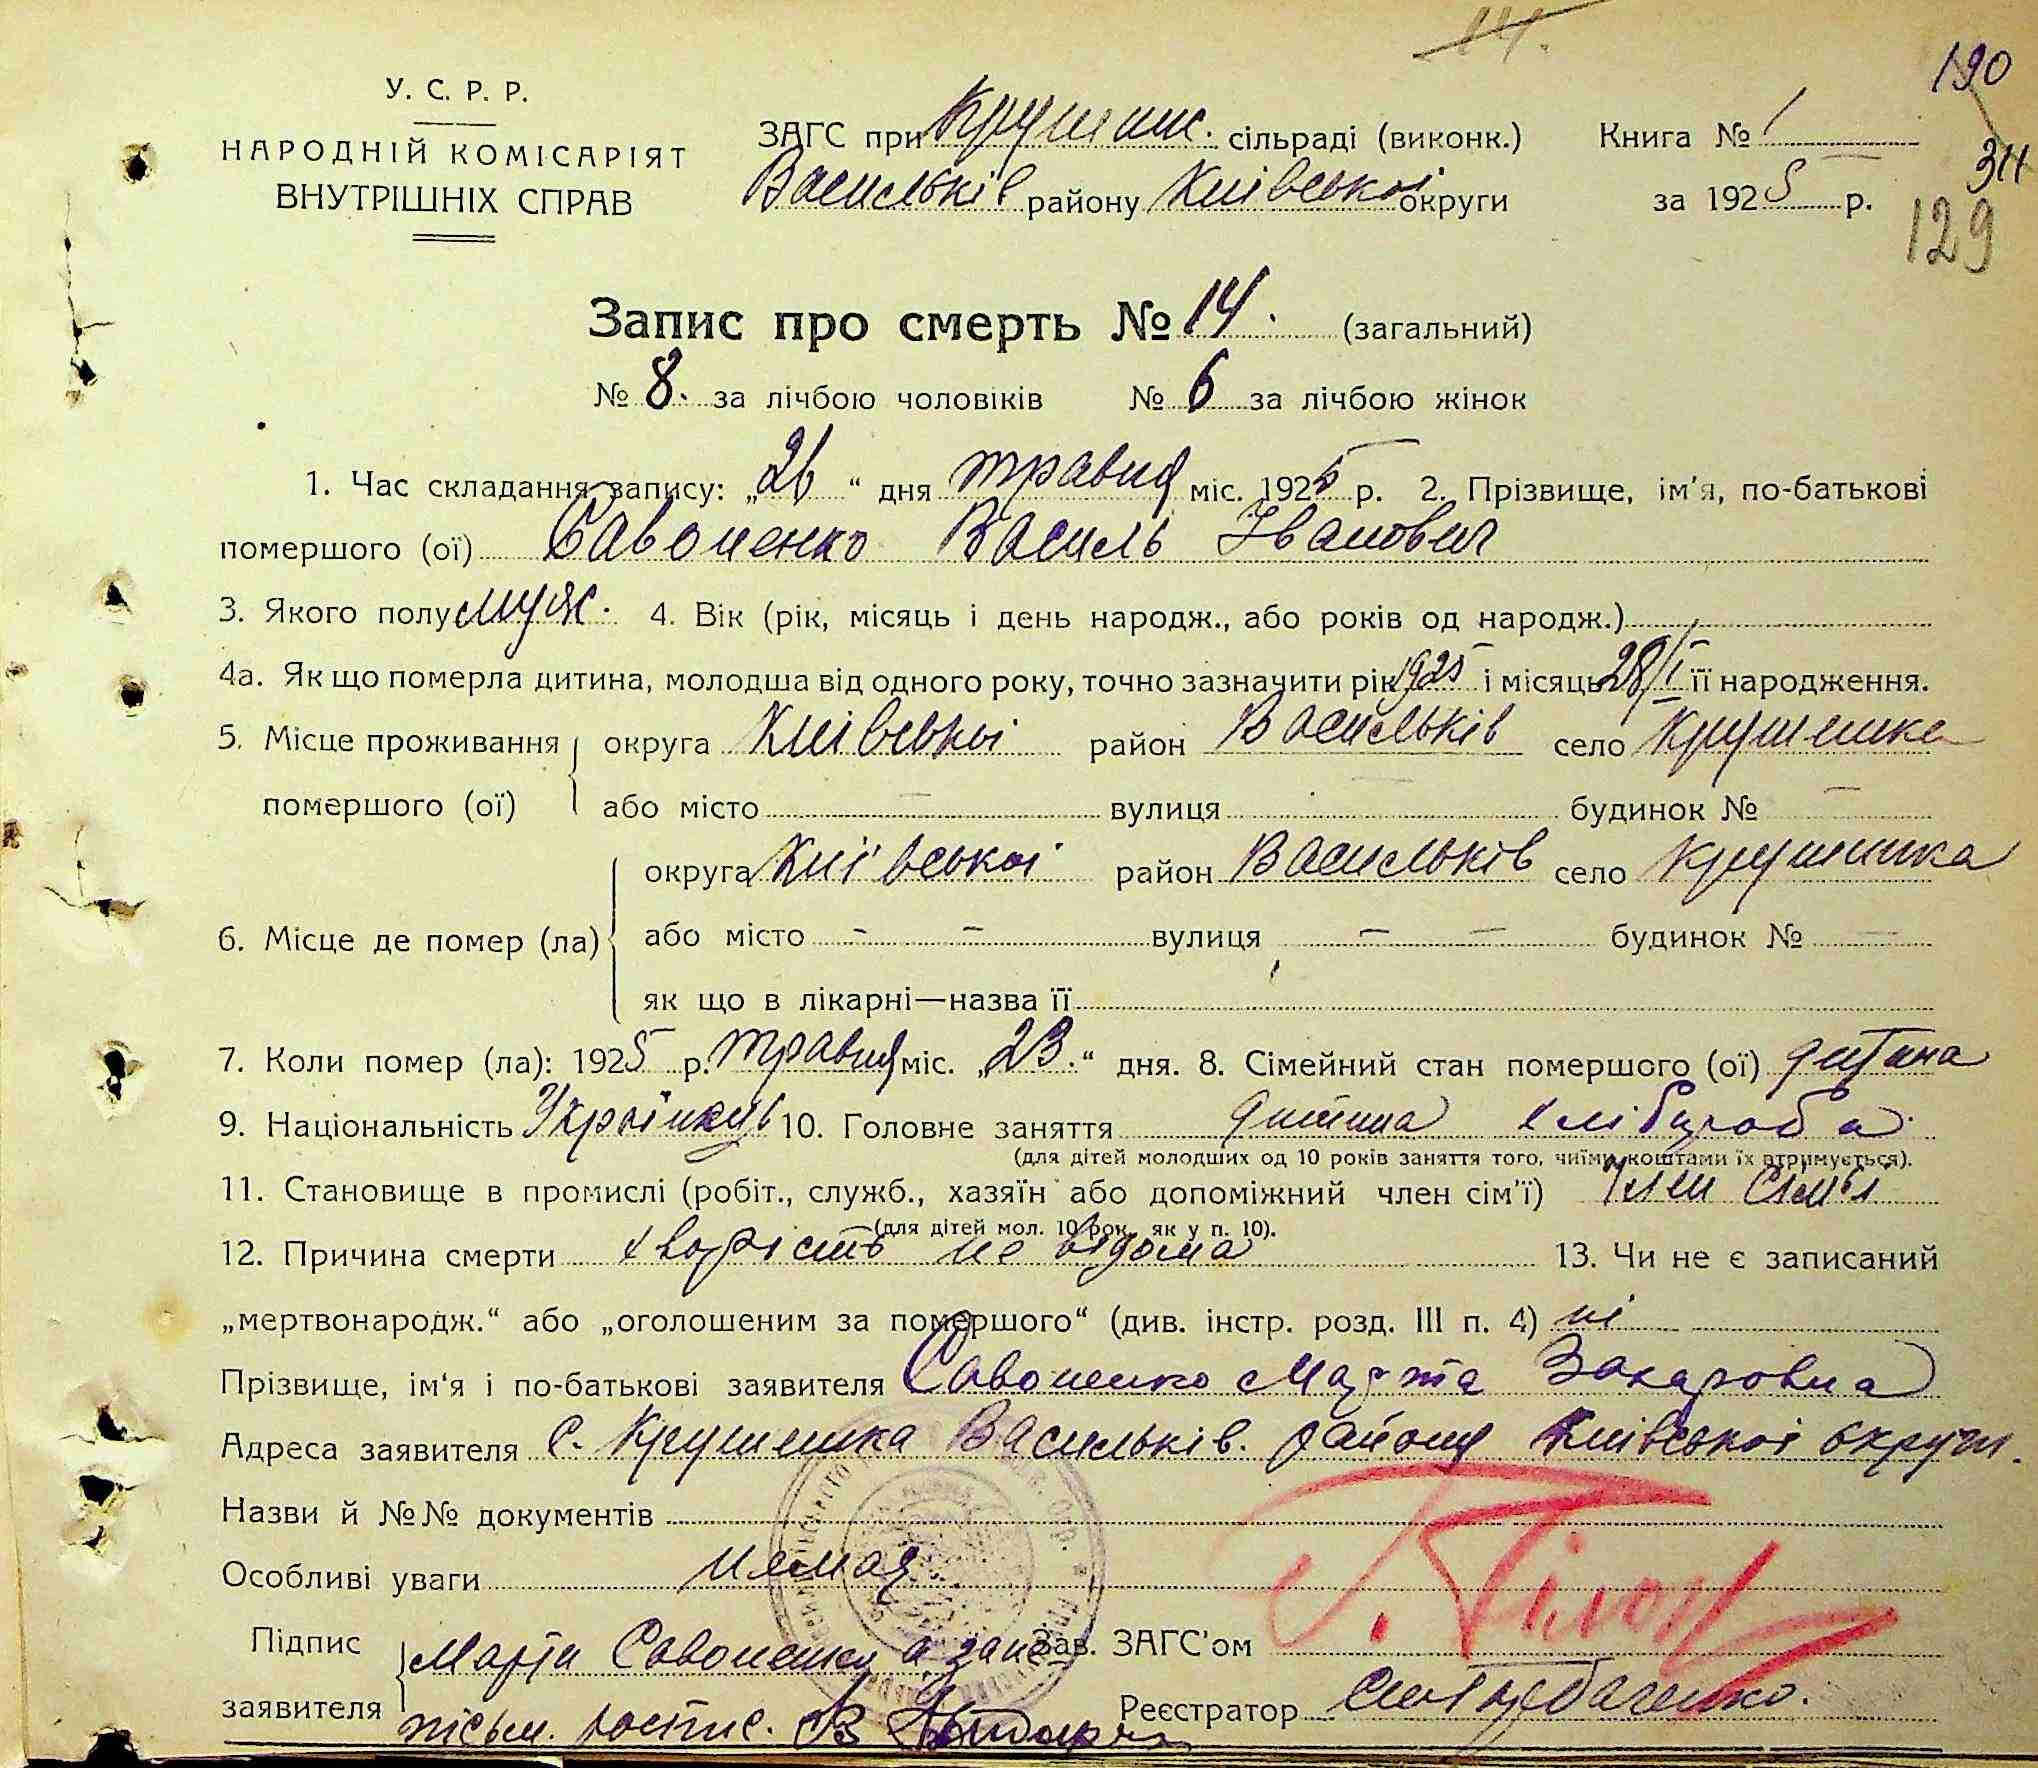 14.
190
У. С. Р. Р.
НАРОДНІЙ КОМІСАРІЯТ
ВНУТРІШНІХ СПРАВ
ЗАГС при Крушин. сільраді (виконк.) Книга № 1
Васильків району Київської округи за 1925 р.
311
129
Запис про смерть № 14. (загальний)
№ 8. за лічбою чоловіків № 6 за лічбою жінок
1. Час складання запису: „26“ дня травня міс. 1925 р. 2. Прізвище, ім'я, по-батькові
помершого (ої) Савоненко Василь Іванович
3. Якого полу муж. 4. Вік (рік, місяць і день народж., або років од народж.)
4а. Як що померла дитина, молодша від одного року, точно зазначити рік 1925 і місяць 28/I її народження.
5. Місце проживання округа Київської район Васильків село Крушинка
помершого (ої) або місто — вулиця — будинок № —
округа Київської район Васильків село Крушинка
6. Місце де помер (ла) або місто - - вулиця - - будинок № —
як що в лікарні—назва її
7. Коли помер (ла): 1925 р. травня міс. „23.“ дня. 8. Сімейний стан помершого (ої) дитина
9. Національність 10. Головне заняття дитина хлібороба
(для дітей молодших од 10 років заняття того, чиїми коштами їх втримується).
11. Становище в промислі (робіт., служб., хазяїн або допоміжний член сім'ї) Член сімьї
(для дітей мол. 10 рок. як у п. 10).
12. Причина смерти хворість не відома 13. Чи не є записаний
„мертвонародж.“ або „оголошеним за помершого“ (див. інстр. розд. III п. 4) ні
Прізвище, ім'я і по-батькові заявителя Савоненко Марта Захаровна
Адреса заявителя с. Крушинка Васильків. району Київської округи.
Назви й №№ документів
Особливі уваги немая
Підпис Марта Савоненко а за неї Зав. ЗАГС'ом
заявителя письм. роспис. Реєстратор